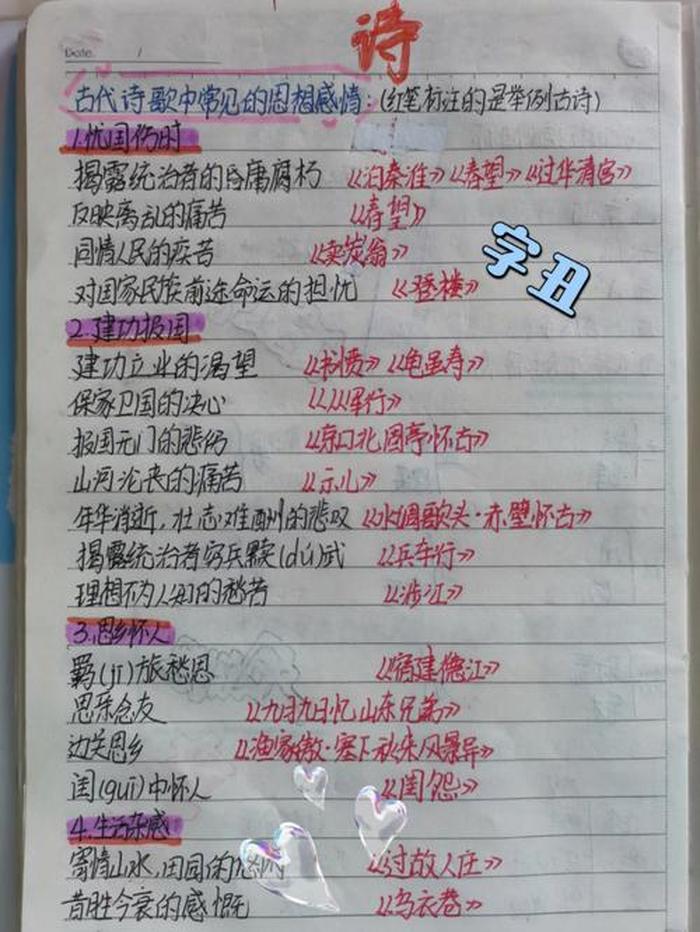 诗
Date. /
古代诗歌中常见的思想感情:(红笔标注的是举例古诗)
1.忧国伤时
揭露统治者的昏庸腐朽 《泊秦淮》《春望》《过华清宫》
反映离乱的痛苦 《春望》
同情人民的疾苦 《卖炭翁》
字丑
对国家民族前途命运的担忧 《登楼》
2.建功报国
建功立业的渴望 《书愤》《龟虽寿》
保家卫国的决心 《从军行》
报国无门的悲伤 《京口北固亭怀古》
山河沦丧的痛苦 《示儿》
年华消逝,壮志难酬的悲叹 《水调歌头·赤壁怀古》
揭露统治者穷兵黩(dú)武 《兵车行》
理想不为人知的愁苦 《涉江》
3.思乡怀人
羁(jī)旅愁思 《宿建德江》
思亲念友 《九月九日忆山东兄弟》
边关思乡 《渔家傲·塞下秋来风景异》
闺(guī)中怀人 《闺怨》
4.生活杂感
寄情山水,田园的 《过故人庄》
昔胜今衰的感慨 《乌衣巷》